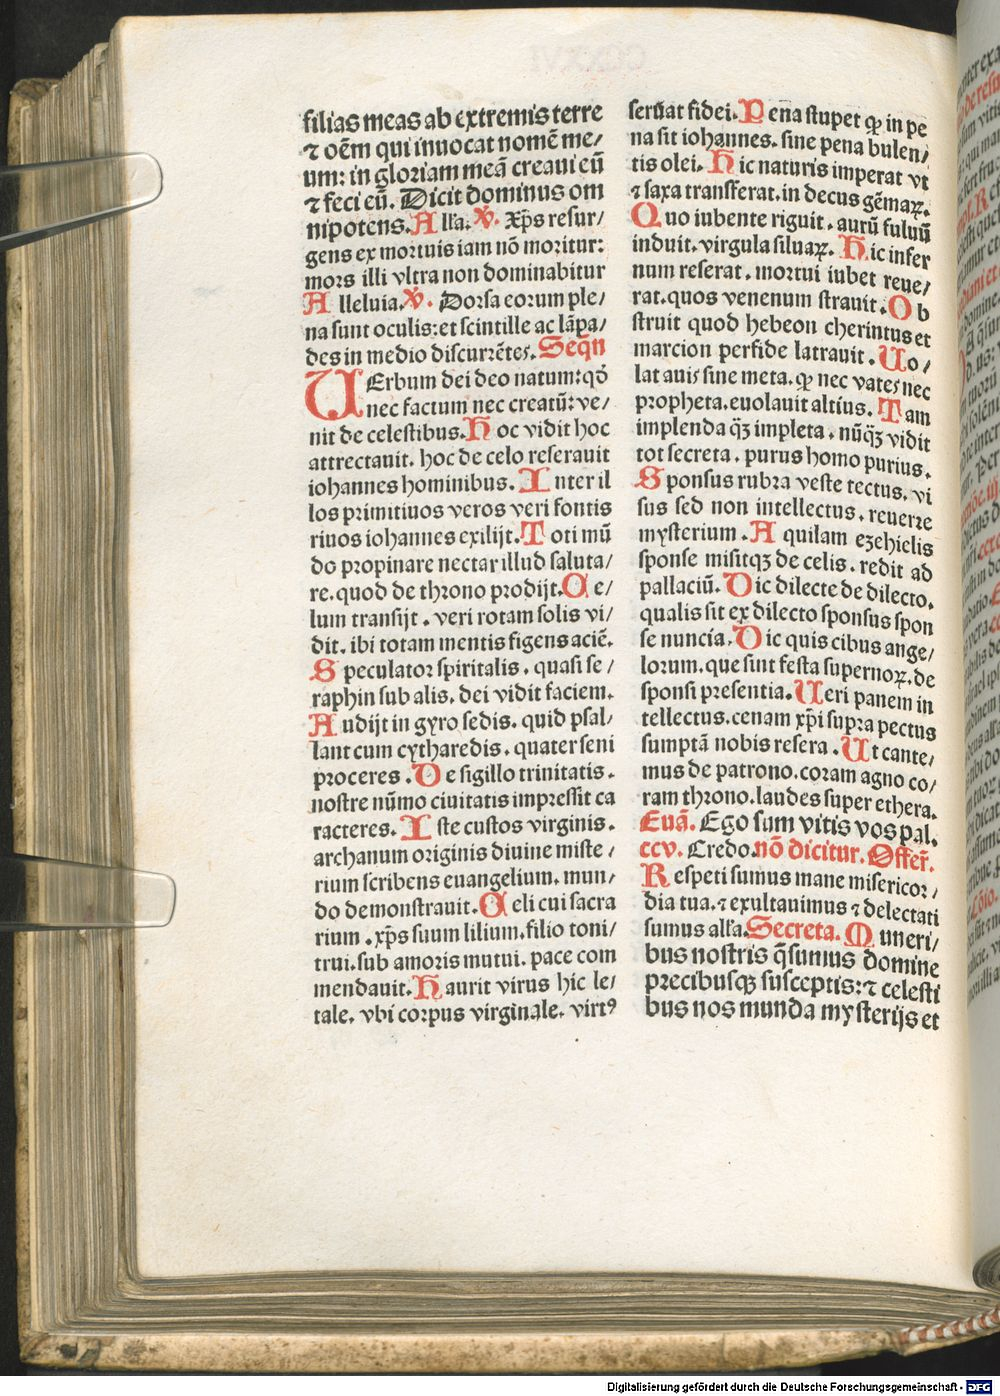 filias meas ab extremis terre
⁊ oēm qui inuocat nomē me/
um: in gloriam meā creaui eū
⁊ feci eū. Dicit dominus om
nipotens. Alľa. ℣. Xp̄s resur/
gens ex mortuis iam nō moritur:
mors illi vltra non dominabitur
Alleluia. ℣. Dorsa eorum ple/
na sunt oculis: et scintille ac lāpa/
des in medio discurrētes. Seqn̄
UErbum dei deo natum: qō
nec factum nec creatū: ve/
nit de celestibus. Hoc vidit hoc
attrectauit. hoc de celo reserauit
iohannes hominibus. Inter il
los primitiuos veros veri fontis
riuos iohannes exilijt. Toti mū
do propinare nectar illud saluta/
re. quod de throno prodijt. Ce/
lum transijt. veri rotam solis vi/
dit. ibi totam mentis figens aciē.
Speculator spiritalis. quasi se/
raphin sub alis. dei vidit faciem.
Audijt in gyro sedis. quid psal/
lant cum cytharedis. quater seni
proceres. De sigillo trinitatis.
nostre nūmo ciuitatis impressit ca
racteres. Iste custos virginis.
archanum originis diuine miste/
rium scribens euangelium. mun/
do demonstrauit. Celi cui sacra
rium. xp̄s suum lilium. filio toni/
trui. sub amoris mutui. pace com
mendauit. Haurit virus hic le/
tale. vbi corpus virginale. virtꝰ
seruat fidei. Pena stupet ꝙ in pe
na sit iohannes. sine pena bulen/
tis olei. Hic naturis imperat vt
⁊ saxa transferat. in decus gēmaꝝ.
Quo iubente riguit. aurū fuluū
induit. virgula siluaꝝ. Hic infer
num reserat. mortui iubet reue/
rat. quos venenum strauit. Ob
struit quod hebeon cherintus et
marcion perfide latrauit. Uo/
lat auis sine meta. ꝙ nec vates nec
propheta. euolauit altius. Tam
implenda qꝫ impleta. nūqꝫ vidit
tot secreta. purus homo purius.
Sponsus rubra veste tectus. vi
sus sed non intellectus. reuerte
mysterium. Aquilam ezehielis
sponse misitqꝫ de celis. redit ad
pallaciū. Dic dilecte de dilecto.
qualis sit ex dilecto sponsus spon
se nuncia. Dic quis cibus ange/
lorum. que sint festa supernoꝝ. de
sponsi presentia. Ueri panem in
tellectus. cenam xp̄i supra pectus
sumptā nobis resera. Ut cante/
mus de patrono. coram agno co/
ram throno. laudes super ethera.
Euā. Ego sum vitis vos pal.
ccv. Credo. nō dicitur. Offer̄.
Respeti sumus mane misericor/
dia tua. ⁊ exultauimus ⁊ delectati
sumus alľa. Secreta. Muneri/
bus nostris q̄sumus domine
precibusqꝫ susceptis: ⁊ celesti
bus nos munda mysterijs et
Digitalisierung gefördert durch die Deutsche Forschungsgemeinschaft - DFG